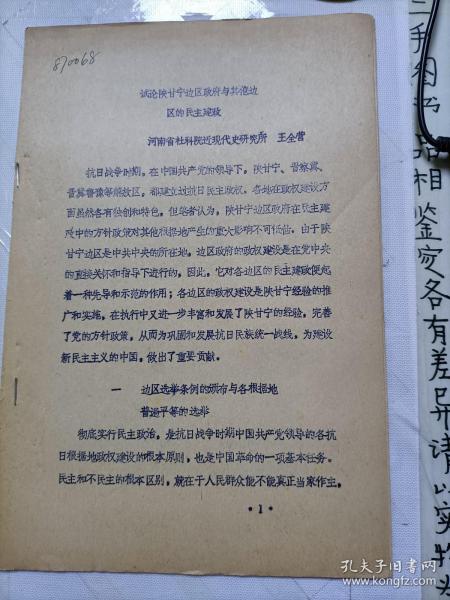 870068
试论陕甘宁边区政府与其他边
区的民主建政
河南省社科院近现代史研究所 王全营
抗日战争时期，在中国共产党的领导下，陕甘宁、晋察冀、
晋冀鲁豫等解放区，都建立过抗日民主政权。各地在政权建设方
面虽然各有独创和特色，但笔者认为，陕甘宁边区政府在民主建
政中的方针政策对其他根据地产生的重大影响不可低估。由于陕
甘宁边区是中共中央的所在地，边区政府的政权建设是在党中央
的直接关怀和指导下进行的，因此，它对各边区的民主建政便起
着一种先导和示范的作用；各边区的政权建设是陕甘宁经验的推
广和实施，在执行中又进一步丰富和发展了陕甘宁的经验，完善
了党的方针政策，从而为巩固和发展抗日民族统一战线，为建设
新民主主义的中国，做出了重要贡献。
一 边区选举条例的颁布与各根据地
普遍平等的选举
彻底实行民主政治，是抗日战争时期中国共产党领导的各抗
日根据地政权建设的根本原则，也是中国革命的一项基本任务。
民主和不民主的根本区别，就在于人民群众能不能真正当家作主。
·1·
二手图书品相鉴定各有差异请以实物为
孔夫子旧书网